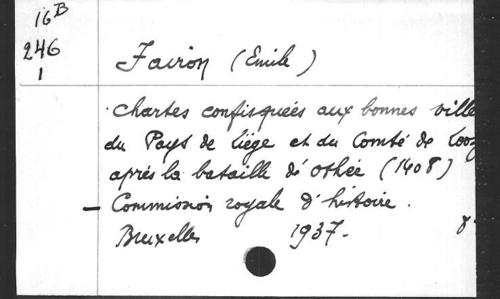 16B
246
1
Fairon (Emile)
Chartes confisquées aux bonnes ville
du Pays de Liège et du Comté de Looz
après la bataille d'Othée (1408)
– Commission royale d'histoire.
Bruxelles 1937. 8.